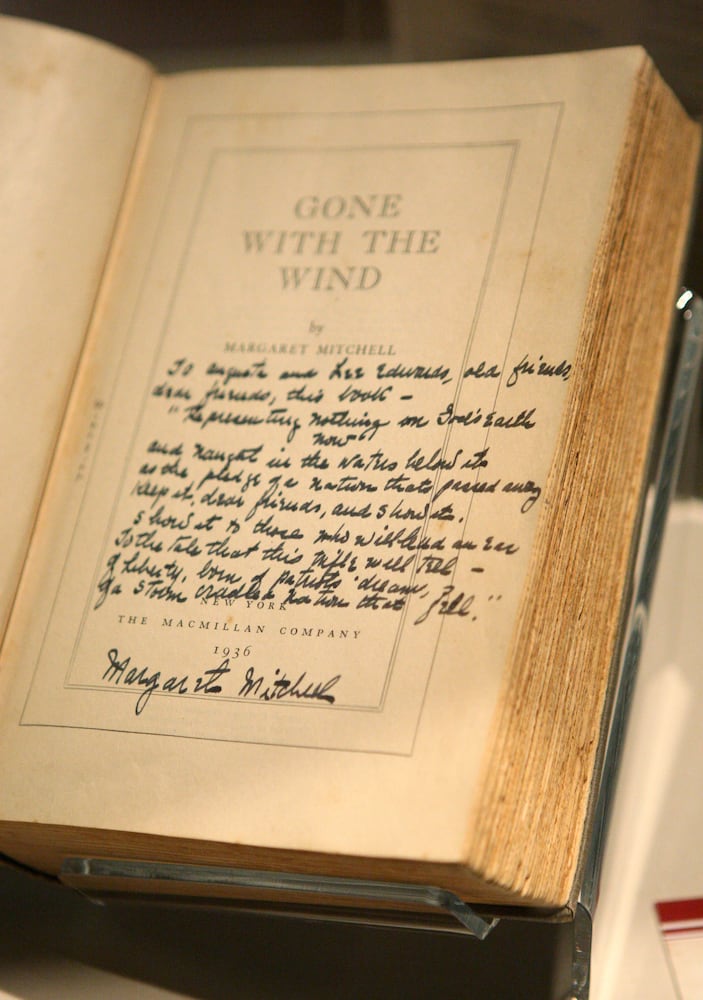 GONE
WITH THE
WIND
by
MARGARET MITCHELL
To Augusta and Lee Edwards, old friends,
dear friends, this book —
"Representing nothing on God's earth
now
and naught in the waters below it
as the pledge of a nation that's passed away
Keep it, dear friends, and show it,
show it to those who will lend an ear
To the tale that this trifle will tell —
of Liberty, born of patriots' dream,
of a storm cradled nation that fell."
NEW YORK
THE MACMILLAN COMPANY
1936
Margaret Mitchell